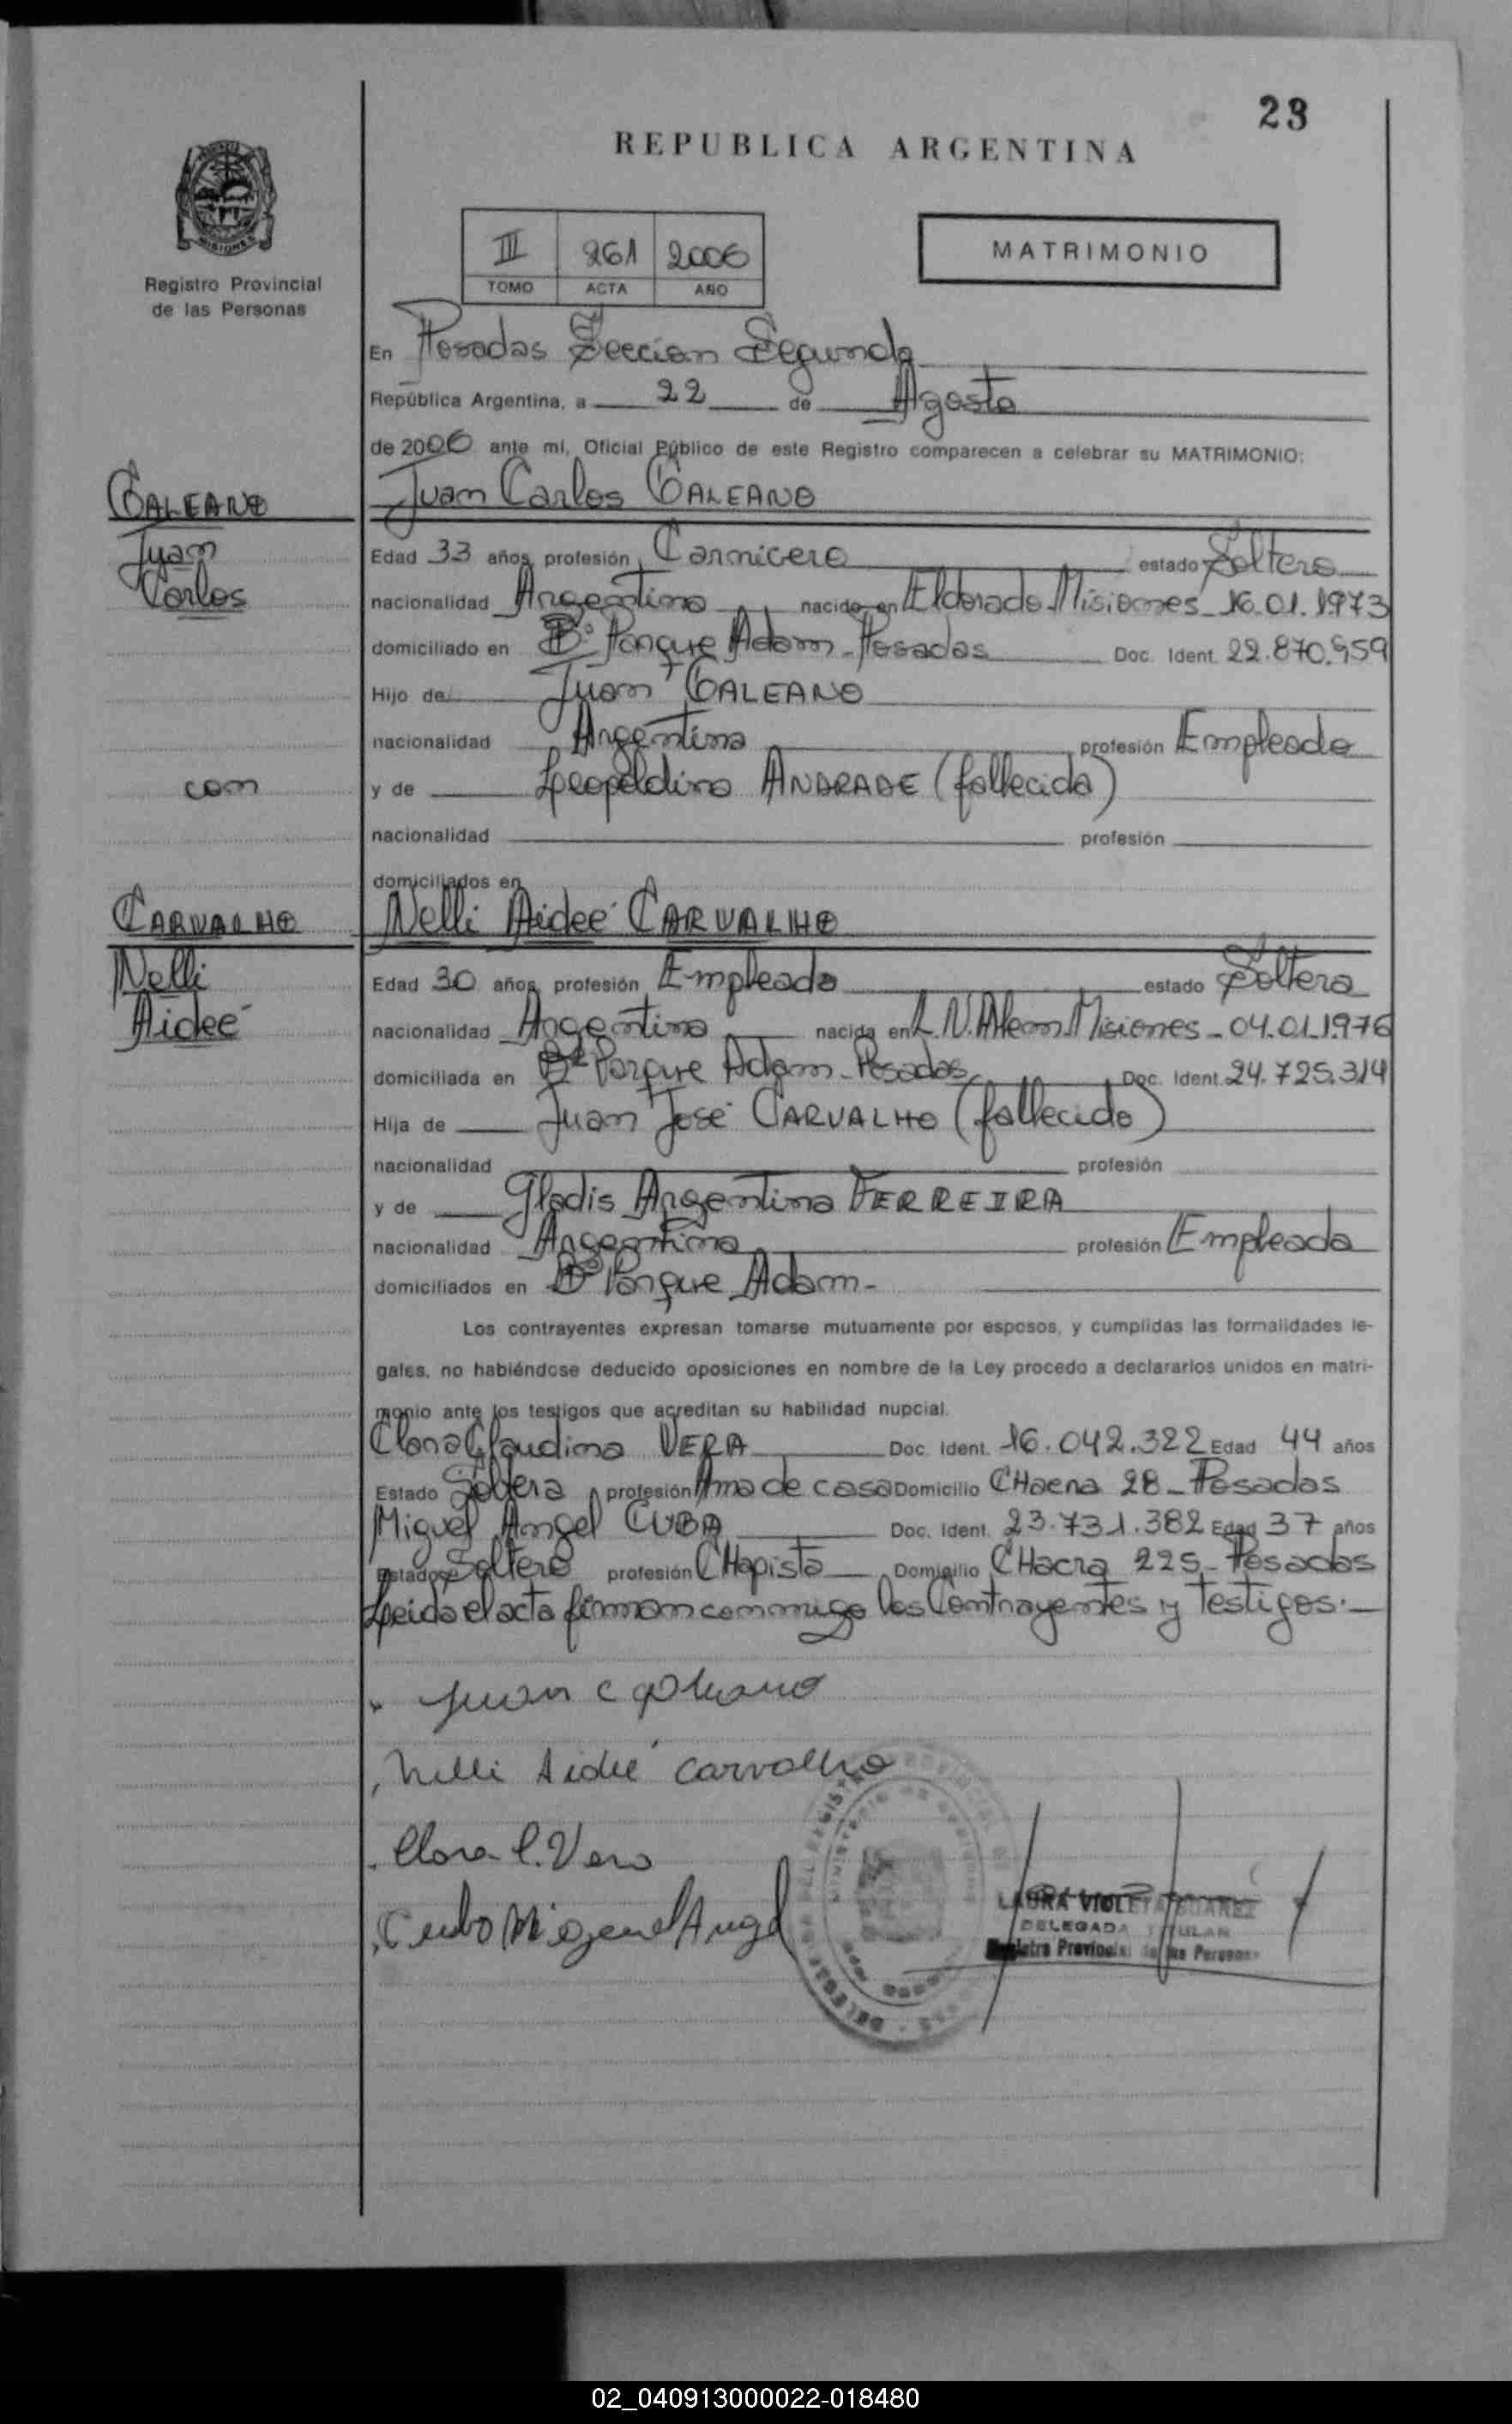 23
REPUBLICA ARGENTINA
III 261 2006
TOMO ACTA AÑO
MATRIMONIO
Registro Provincial
de las Personas
En Posadas Sección Segunda
República Argentina, a 22 de Agosto
de 2006 ante mí, Oficial Público de este Registro comparecen a celebrar su MATRIMONIO:
GALEANO
Juan
Carlos
con
CARVALHO
Nelli
Aideé
Juan Carlos GALEANO
Edad 33 años, profesión Carnicero estado Soltero
nacionalidad Argentino nacido en Eldorado-Misiones-16.01.1973
domiciliado en Bº Parque Adam-Posadas Doc. Ident. 22.870.959
Hijo de Juan GALEANO
nacionalidad Argentina profesión Empleado
y de Leopoldina ANDRADE (fallecida)
nacionalidad profesión
domiciliados en
Nelli Aideé CARVALHO
Edad 30 años, profesión Empleada estado Soltera
nacionalidad Argentina nacida en L.N.Alem-Misiones-04.01.1976
domiciliada en Bº Parque Adam-Posadas Doc. Ident. 24.725.314
Hija de Juan José CARVALHO (fallecido)
nacionalidad profesión
y de Gladis Argentina FERREIRA
nacionalidad Argentina profesión Empleada
domiciliados en Bº Parque Adam-
Los contrayentes expresan tomarse mutuamente por esposos, y cumplidas las formalidades le-
gales, no habiéndose deducido oposiciones en nombre de la Ley procedo a declararlos unidos en matri-
monio ante los testigos que acreditan su habilidad nupcial.
Clara Claudina VERA Doc. Ident. 16.042.322 Edad 44 años
Estado Soltera profesión Ama de casa Domicilio CHacra 28-Posadas
Miguel Angel CUBA Doc. Ident. 23.731.382 Edad 37 años
Estado Soltero profesión CHapista Domicilio CHacra 225-Posadas
Leida el acta firman conmigo los Contrayentes y Testigos.-
Juan C Galeano
Nelli Aideé Carvalho
Clara C. Vera
Cuba Miguel Angel
LAURA VIOLETA SUAREZ
DELEGADA TITULAR
Registro Provincial de las Personas
02_040913000022-018480